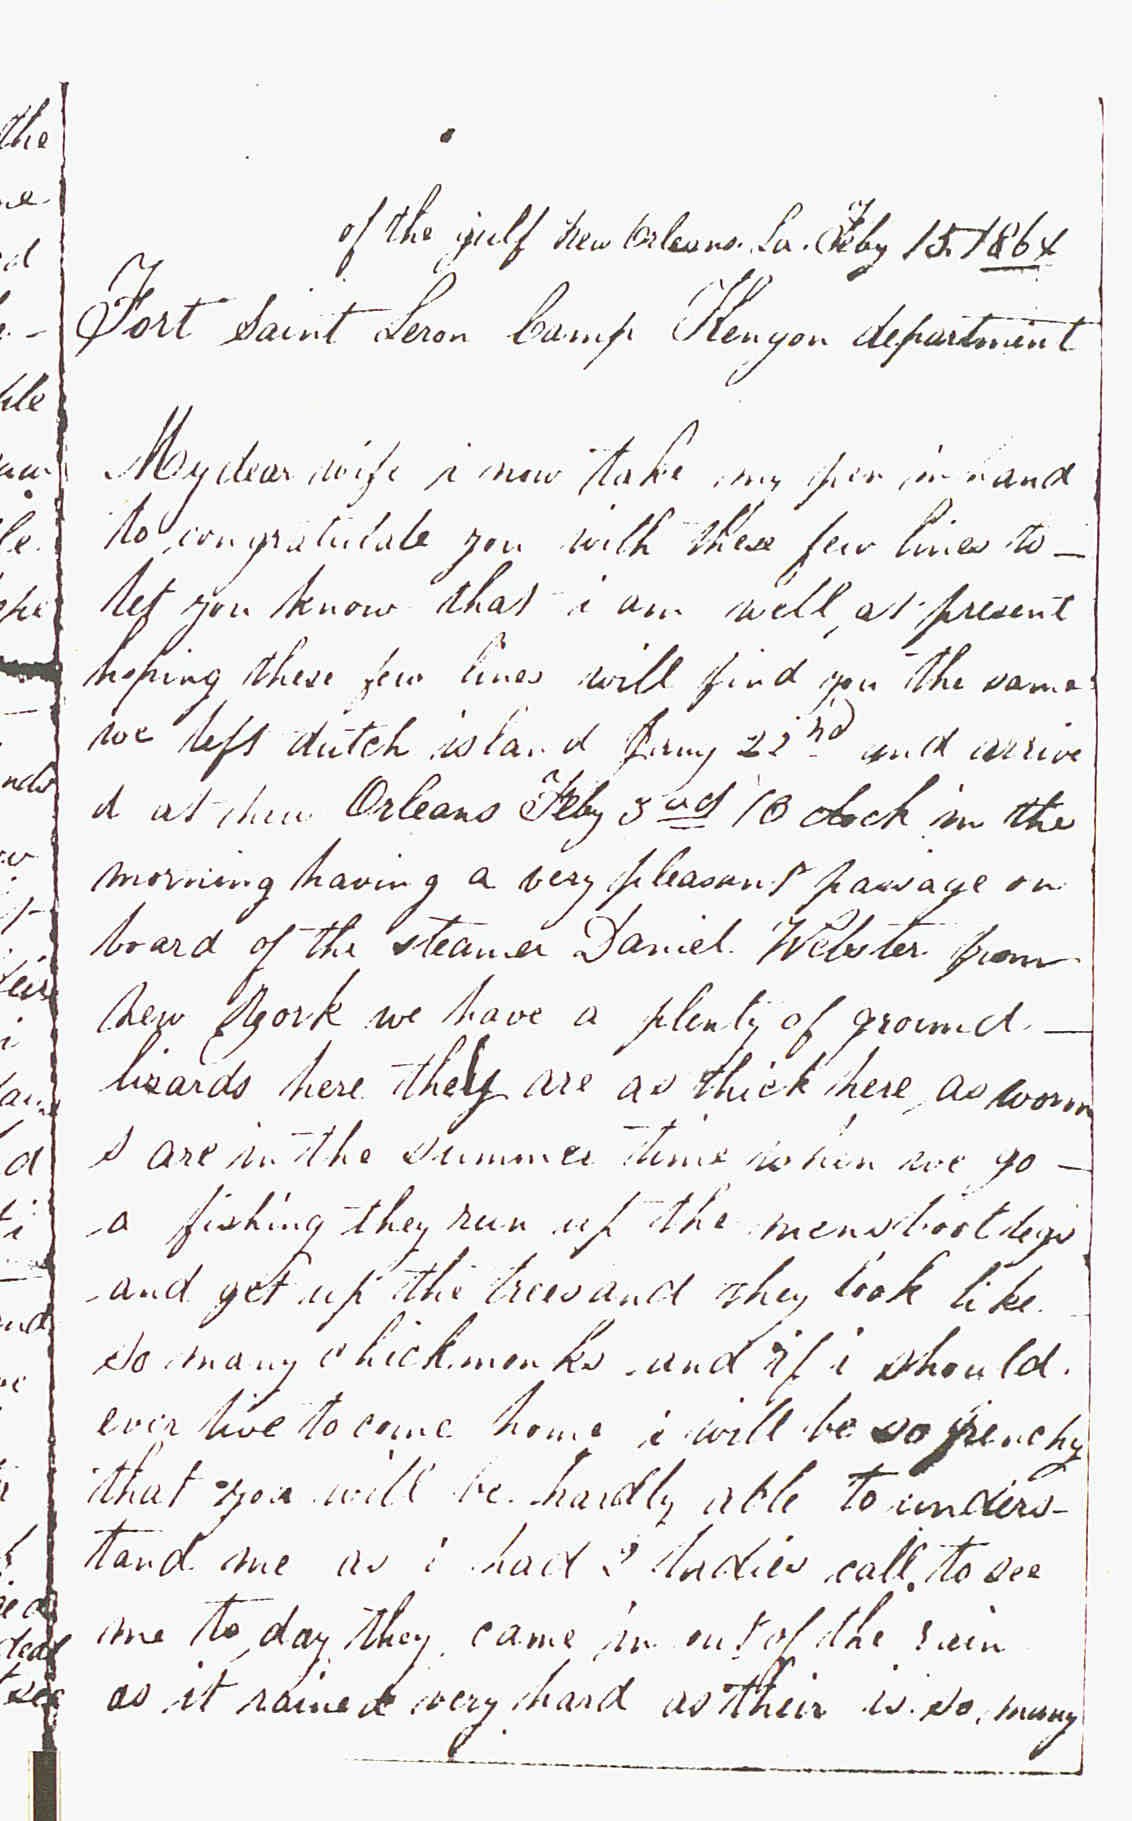 of the gulf New Orleans. La. Feby 15. 1864
Fort Saint Leron Camp Kenyon department
My dear wife i now take my pen in hand
to congratulate you with these few lines to -
let you know that i am well, at present
hoping these few lines will find you the same
we left dutch island Jany 22nd and arrive
d at new Orleans Feby 3rd 10 clock in the
morning having a very pleasant passage on
board of the steamer Daniel Webster from
New York we have a plenty of ground -
lizards here they are as thick here as worm
s are in the summer time when we go -
a fishing they run up the mens boot legs
and get up the trees and they look like
so many chickmonks and if i should.
ever live to come home i will be so frenchy
that you will be hardly able to unders-
tand me as i had 2 ladies call to see
me to day they came in out of the rain
as it rained very hard as their is so many
the
d
nds
i
d
and
dear
see